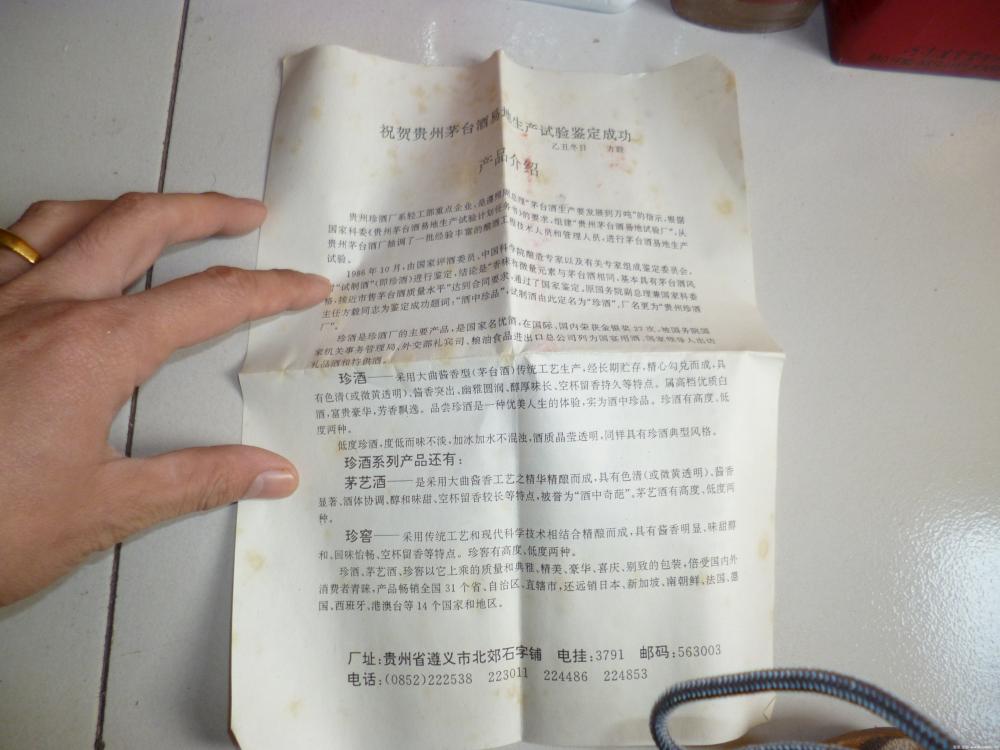 祝贺贵州茅台酒易地生产试验鉴定成功
乙丑冬日 方毅
产品介绍
贵州珍酒厂系轻工部重点企业,是遵照周总理“茅台酒生产要发展到万吨”的指示,根据
国家科委《贵州茅台酒易地生产试验计划任务书》的要求,组建“贵州茅台酒易地试验厂”,从
贵州茅台酒厂抽调了一批经验丰富的酿酒工程技术人员和管理人员,进行茅台酒易地生产
试验。
1986年10月,由国家评酒委员、中国科学院酿造专家以及有关专家组成鉴定委员会,
对“试制酒”(即珍酒)进行鉴定,结论是“香味和微量元素与茅台酒相同,基本具有茅台酒风
格,接近市售茅台酒质量水平”达到合同要求,通过了国家鉴定。原国务院副总理兼国家科委
主任方毅同志为鉴定成功题词:“酒中珍品”,试制酒由此定名为“珍酒”,厂名更为“贵州珍酒
厂”。
珍酒是珍酒厂的主要产品,是国家名优酒,在国际、国内荣获金银奖27次,被国务院国
家机关事务管理局、外交部礼宾司、粮油食品进出口总公司列为国宴用酒、国家领导人出访
礼品酒和特供酒。
珍酒——采用大曲酱香型(茅台酒)传统工艺生产,经长期贮存,精心勾兑而成,具
有色清(或微黄透明)、酱香突出、幽雅圆润、醇厚味长、空杯留香持久等特点。属高档优质白
酒,富贵豪华,芳香飘逸。品尝珍酒是一种优美人生的体验,实为酒中珍品。珍酒有高度、低
度两种。
低度珍酒,度低而味不淡,加冰加水不混浊,酒质晶莹透明,同样具有珍酒典型风格。
珍酒系列产品还有:
茅艺酒——是采用大曲酱香工艺之精华精酿而成,具有色清(或微黄透明)、酱香
显著、酒体协调、醇和味甜、空杯留香较长等特点,被誉为“酒中奇葩”。茅艺酒有高度、低度两
种。
珍窖——采用传统工艺和现代科学技术相结合精酿而成,具有酱香明显、味甜醇
和、回味怡畅、空杯留香等特点。珍窖有高度、低度两种。
珍酒、茅艺酒、珍窖以它上来的质量和典雅、精美、豪华、喜庆、别致的包装,倍受国内外
消费者青睐,产品畅销全国31个省、自治区、直辖市,还远销日本、新加坡、南朝鲜、法国、墨
国、西班牙、港澳台等14个国家和地区。
厂址:贵州省遵义市北郊石字铺 电挂:3791 邮码:563003
电话:(0852)222538 223011 224486 224853